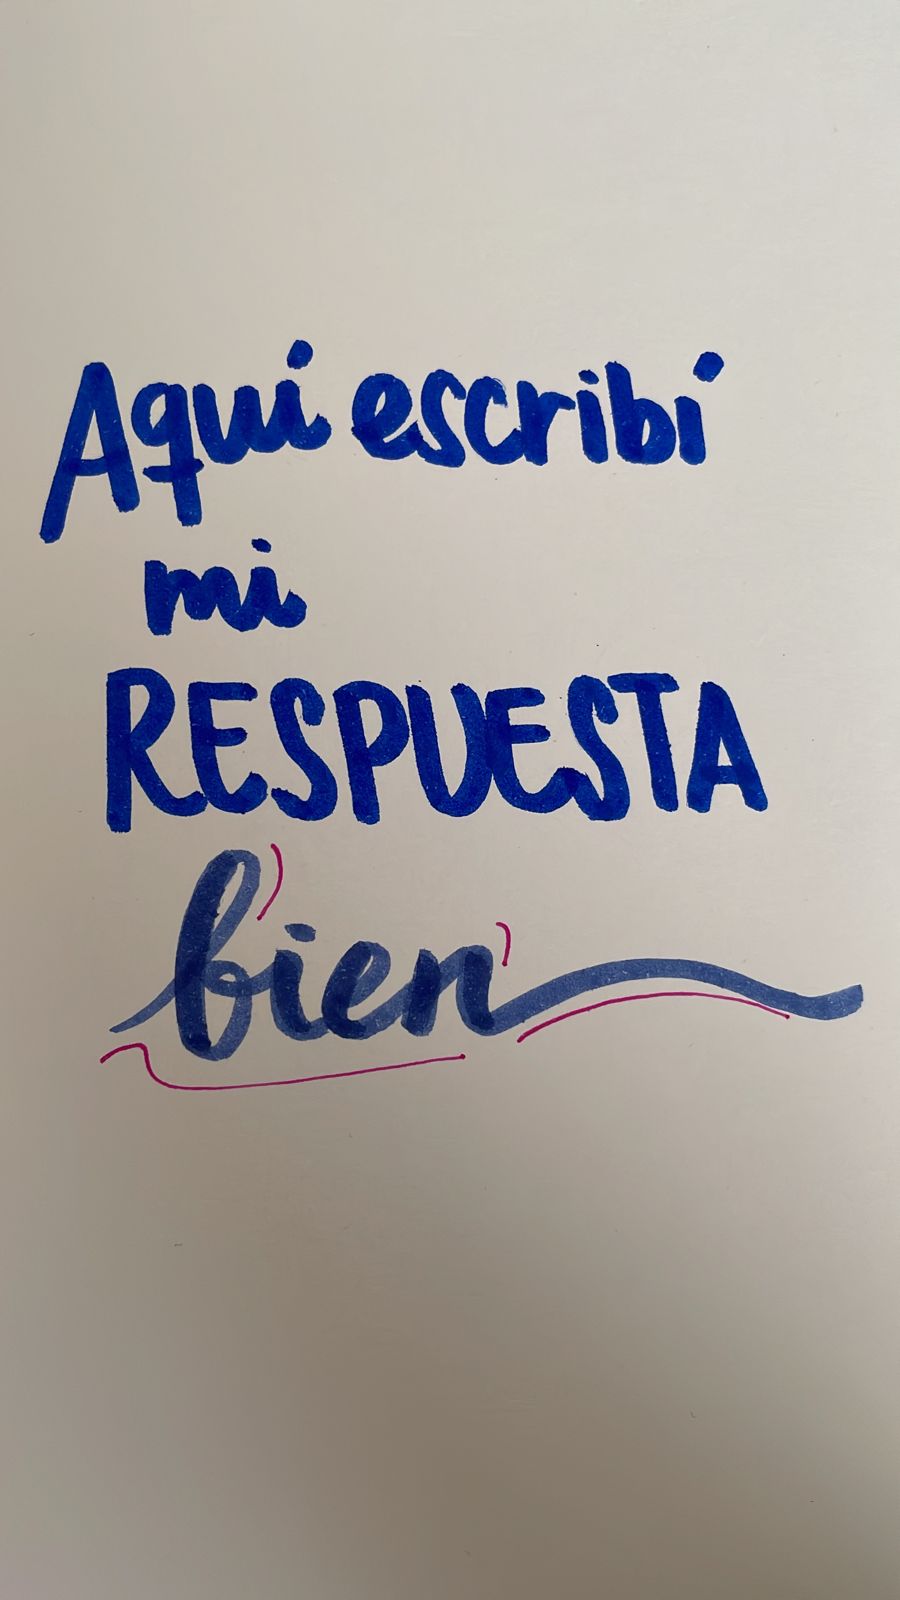 Aquí escribí
mi
RESPUESTA
bien